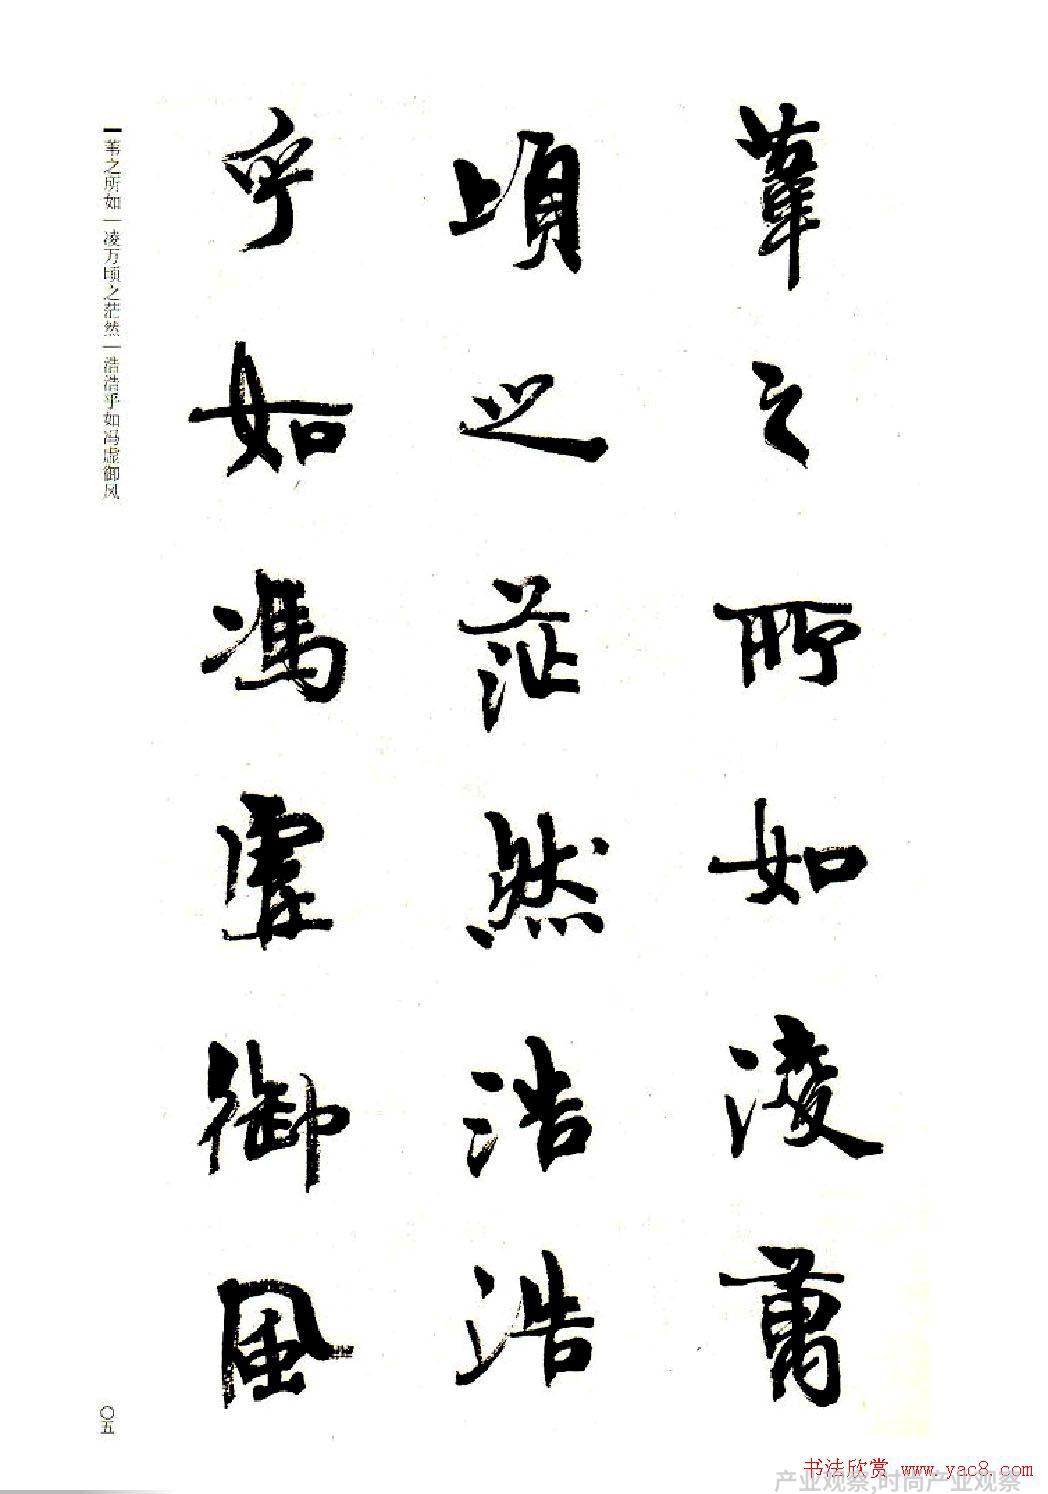 葦之所如淩萬
頃之茫然浩浩
乎如馮虛御風
苇之所如 | 凌万顷之茫然 | 浩浩乎如冯虚御风
〇五
书法欣赏 www.yac8.com
产业观察,时尚产业观察